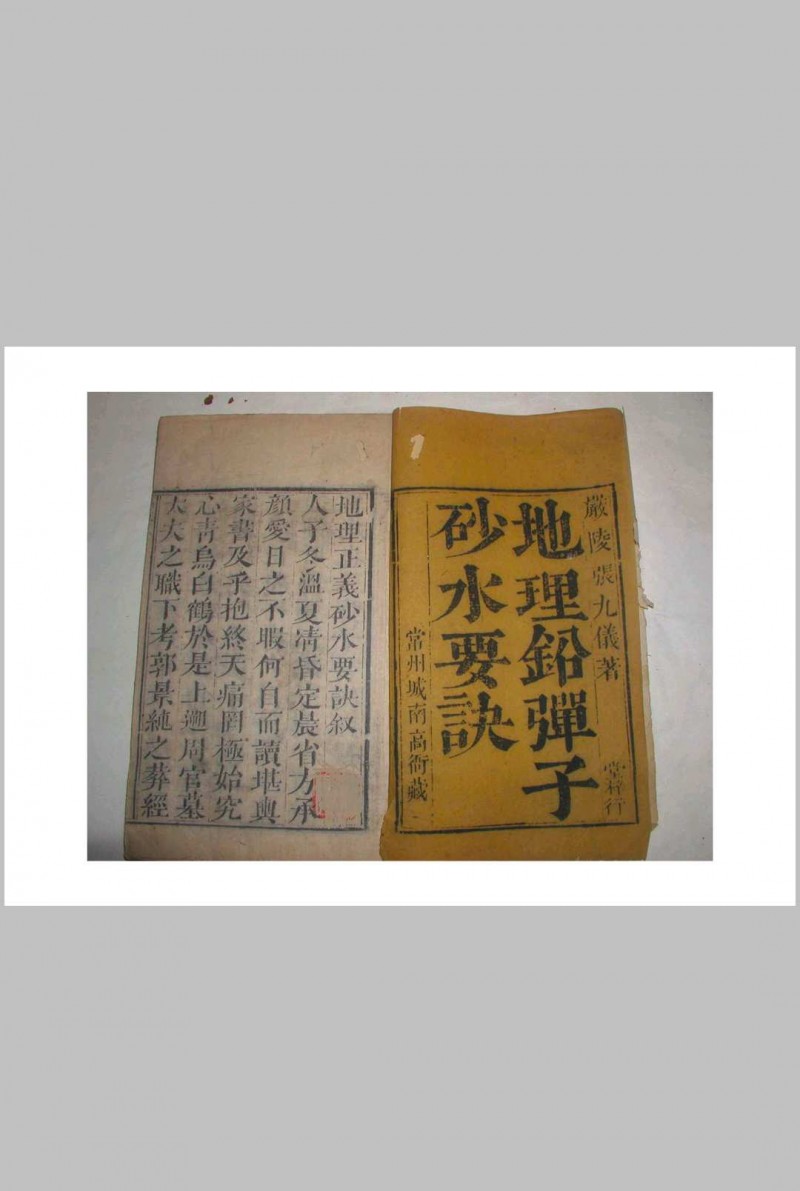 嚴陵張九儀著
堂梓行
地理鉛彈子
砂水要訣
常州城南高衙藏
地理正義砂水要訣叙
人子冬溫夏凊昏定晨省方承
顔愛日之不暇何自而讀堪輿
家書及乎抱終天痛罔極始究
心青烏白鶴於是上遡周官墓
大夫之職下考郭景純之葬經